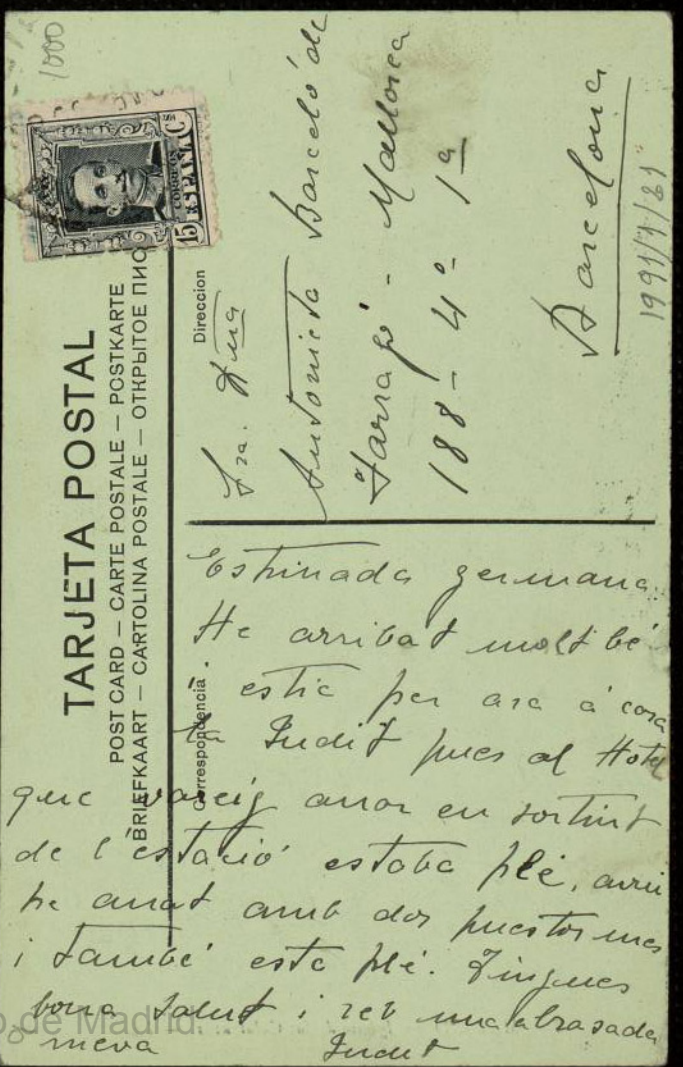 1000
CORREOS
15 ESPAÑA Cs
TARJETA POSTAL
POST CARD — CARTE POSTALE — POSTKARTE
BRIEFKAART — CARTOLINA POSTALE — ОТКРЫТОЕ ПИС
Direccion
Sra. Dna
Antonieta Barceló de
Tarragó - Mallorca
188 - 4º - 1ª
Barcelona
1991/1/21
Correspondencia
Estimada germana.
He arribat molt bé
i estic per ara á casa
la Judit pues al Hotel
que vareig anar en sortint
de l'estació estaba plé, avui
he anat amb dos puestos mes
i també esta plé. Tingues
bona salut i reb una abrasada
meva
Judit
o de Madrid